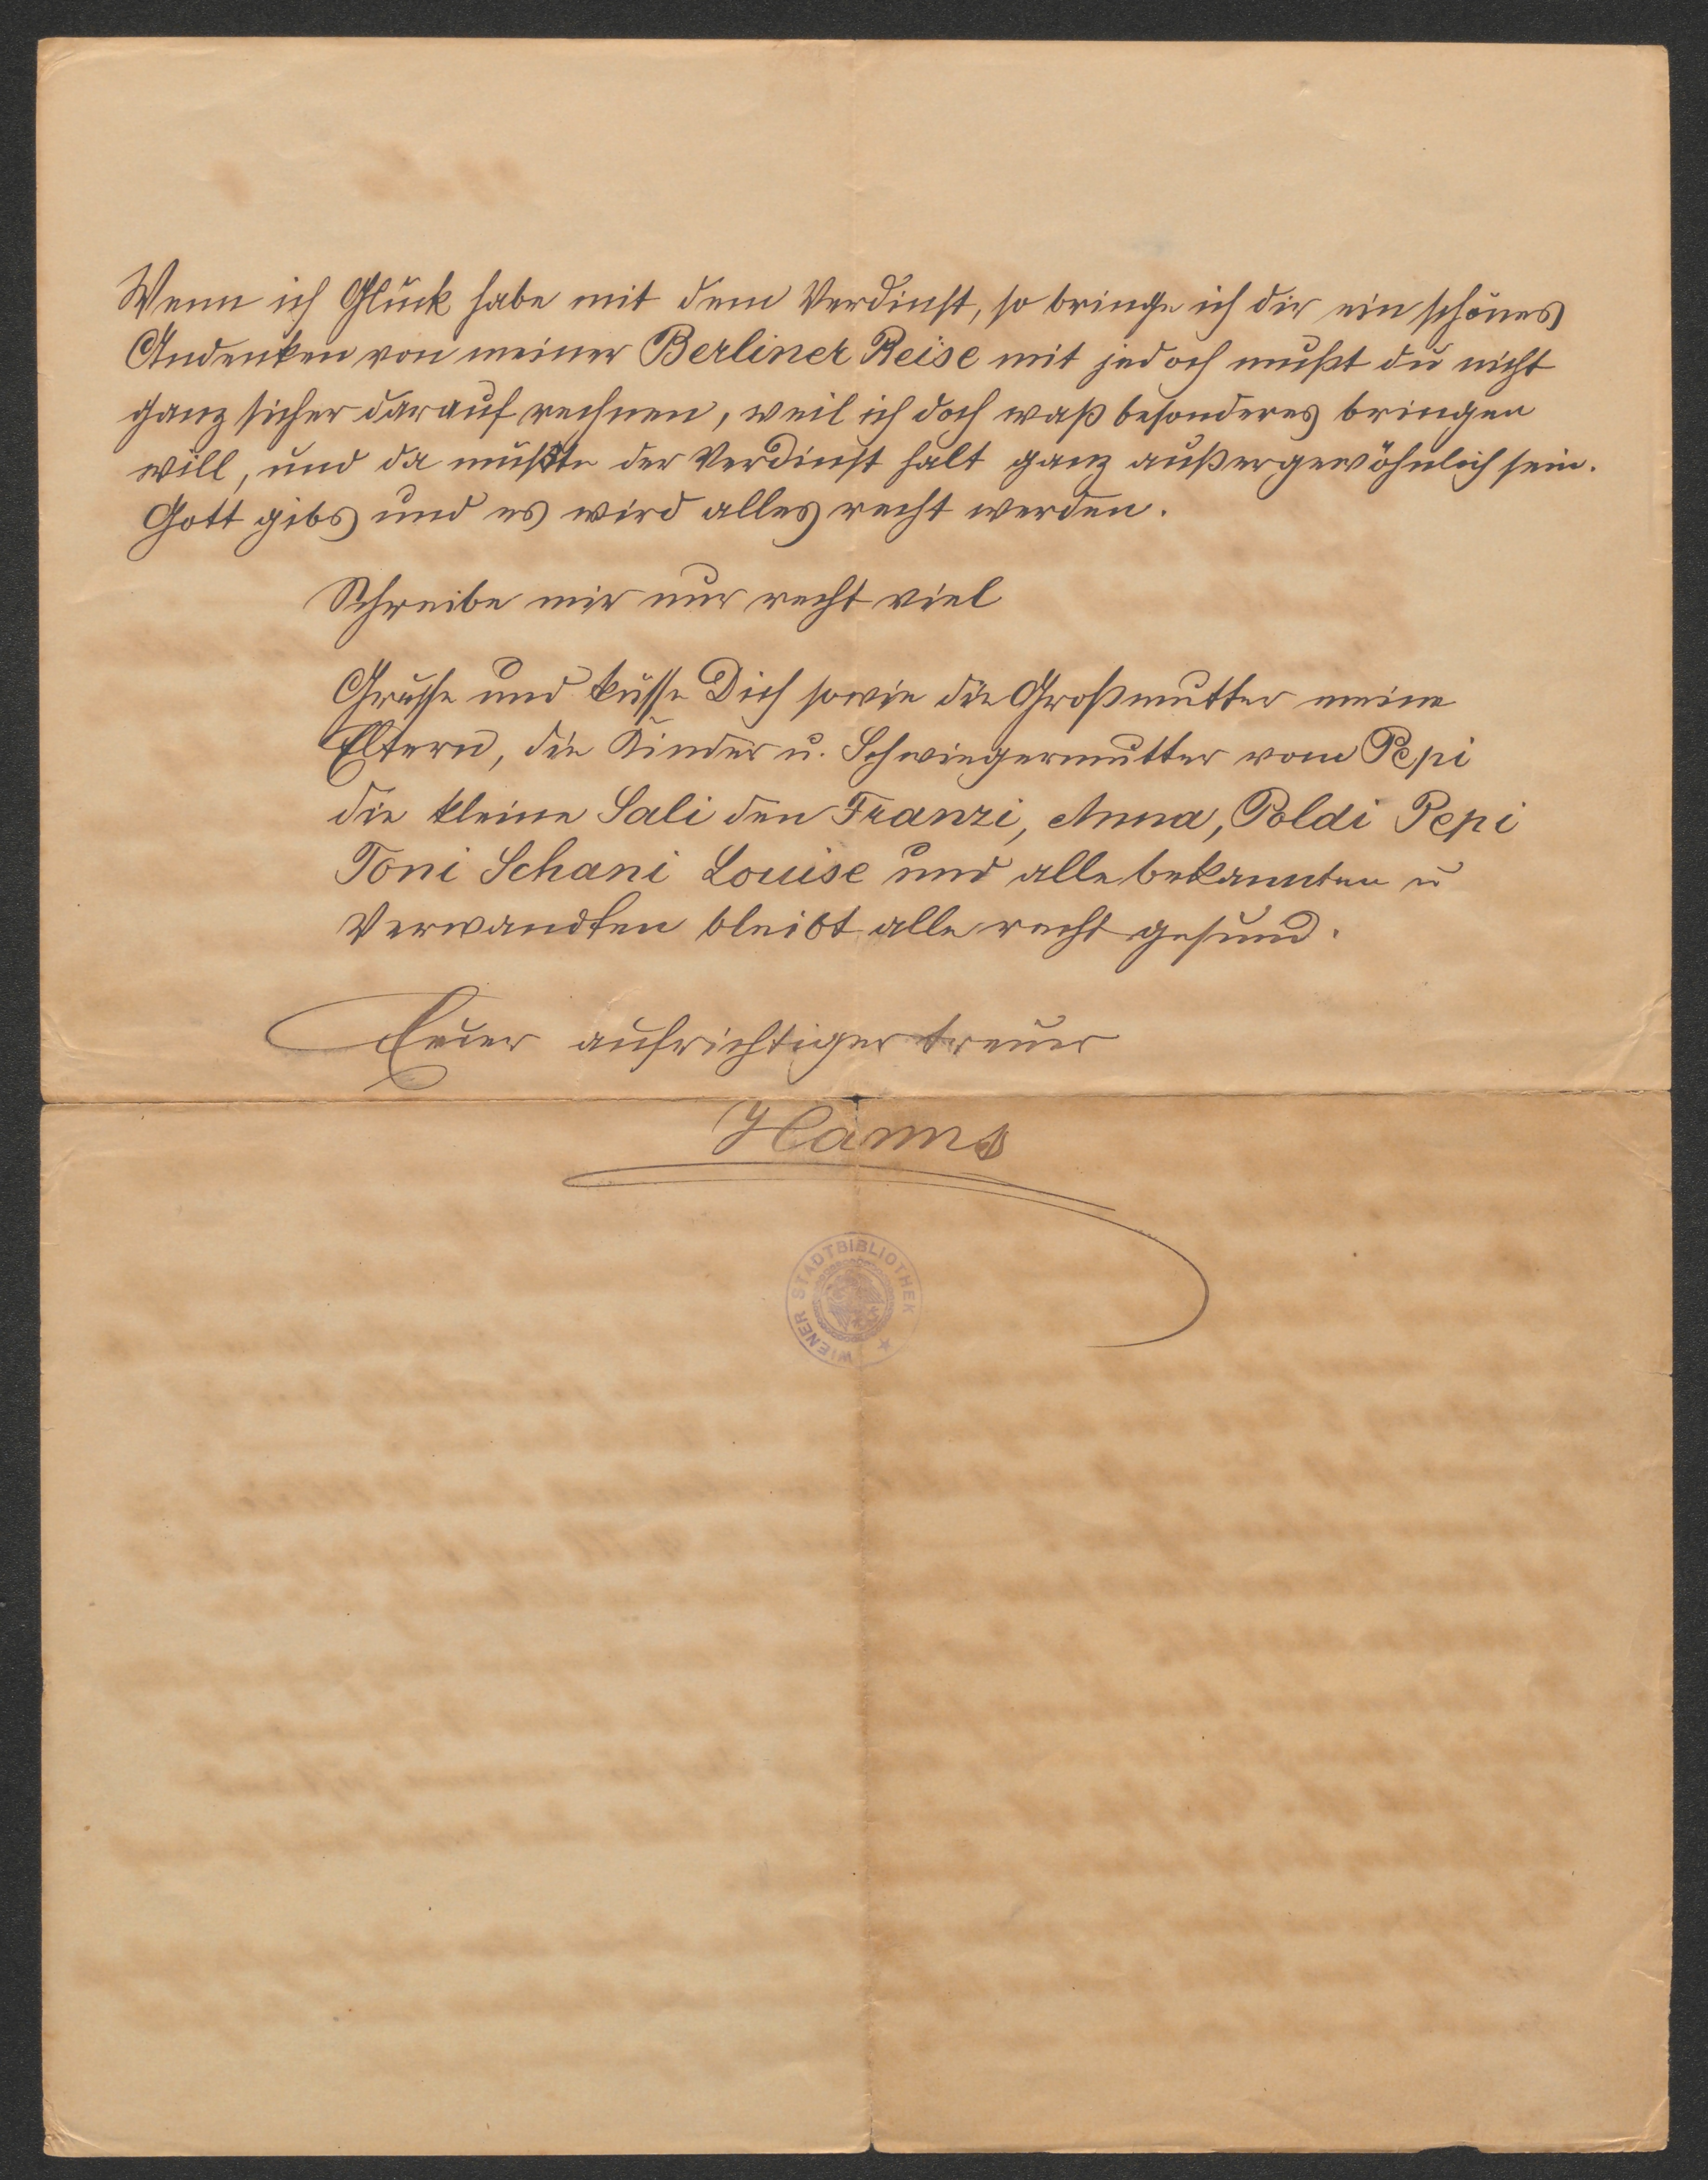 Wenn ich Glück habe mit dem Verdinst, so bringe ich dir ein schönes
Andenken von meiner Berliner Reise mit jedoch mußt du nicht
ganz sicher darauf rechnen, weil ich doch waß besonderes bringen
will, und da müßte der Verdinst halt ganz außergewöhnlich sein.
Gott gibs und es wird alles recht werden.
Schreibe mir nur recht viel
Grüsse und küsse Dich sowie die Großmutter meine
Eltern, die Kinder u. Schwiegermutter vom Pepi
die kleine Sali den Franzi, Anna, Poldi Pepi
Toni Schani Louise und alle bekannten u
Verwandten bleibt alle recht gesund.
Euer aufrichtiger treuer
Hanns
WIENER STADTBIBLIOTHEK